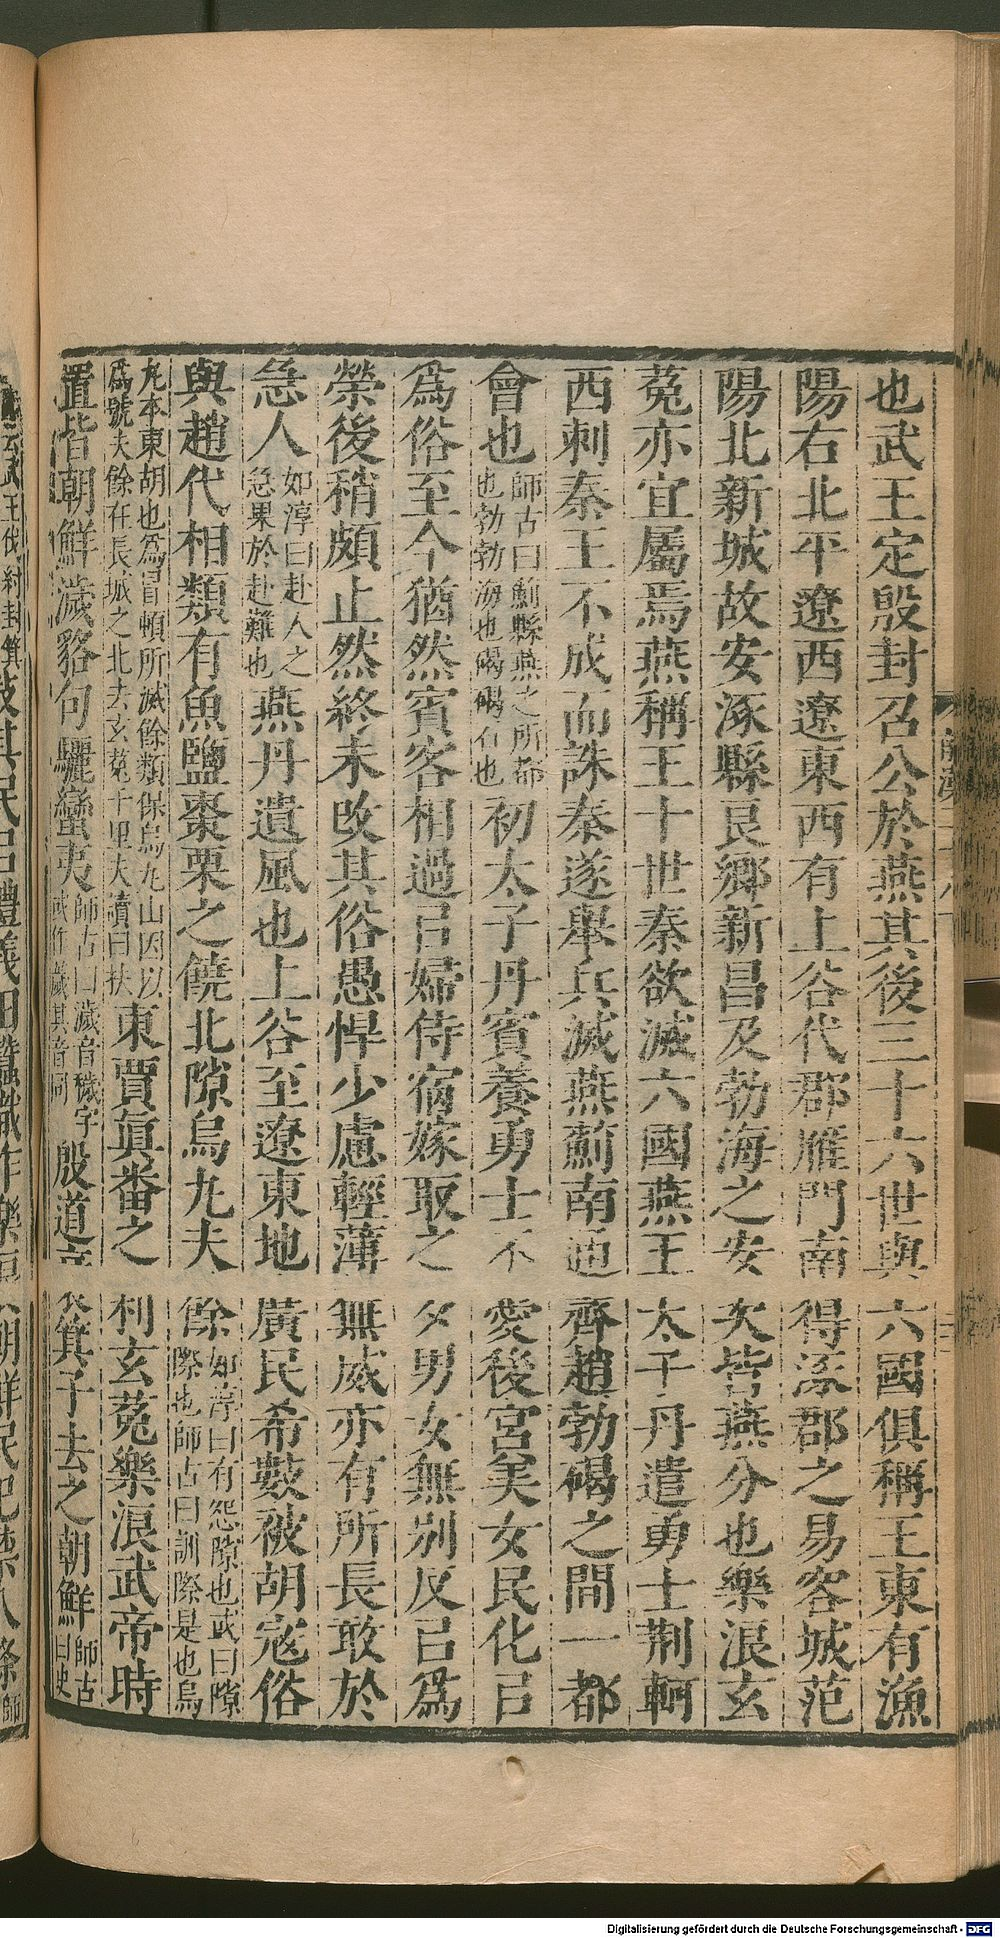 也武王定殷封召公於燕其後三十六世與六國俱稱王東有漁
陽右北平遼西遼東西有上谷代郡雁門南得涿郡之易容城范
陽北新城故安涿縣良鄉新昌及勃海之安次皆燕分也樂浪玄
菟亦宜屬焉燕稱王十世秦欲滅六國燕王太子丹遣勇士荆軻
西刺秦王不成而誅秦遂舉兵滅燕薊南通齊趙勃碣之間一都
會也師古曰薊縣燕之所都也勃勃海也碣碣石也初太子丹賓養勇士不愛後宮美女民化㠯
爲俗至今猶然賓客相過㠯婦侍宿嫁取之夕男女無别反㠯爲
榮後稍頗止然終未改其俗愚悍少慮輕薄無威亦有所長敢於
急人如淳曰赴人之急果於赴難也燕丹遺風也上谷至遼東地廣民希數被胡寇俗
與趙代相類有魚鹽棗栗之饒北隙烏丸夫餘如淳曰有怨隙也或曰隙際也師古曰訓際是也烏
丸本東胡也爲冒頓所滅餘類保烏丸山因以爲號夫餘在長城之北去玄菟千里夫讀曰扶東賈眞番之利玄菟樂浪武帝時
置皆朝鮮濊貉句驪蠻夷師古曰濊音穢字或作薉其音同殷道衰箕子去之朝鮮師古曰史
云武王伐紂封箕
敎其民㠯禮義田蠶織作樂浪朝鮮民犯禁八條師
前漢
Digitalisierung gefördert durch die Deutsche Forschungsgemeinschaft - DFG